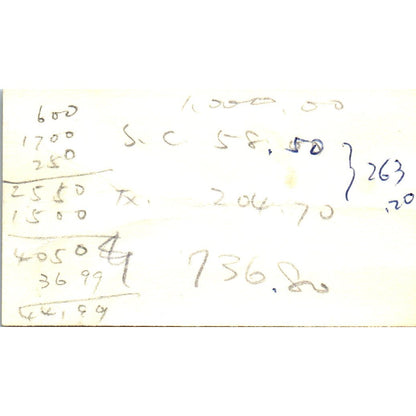 600
1700
250
2550
1500
4050
36 99
44,99
1,000.00
S.C 58.50
Tx. 204.70
263
.20
736.80